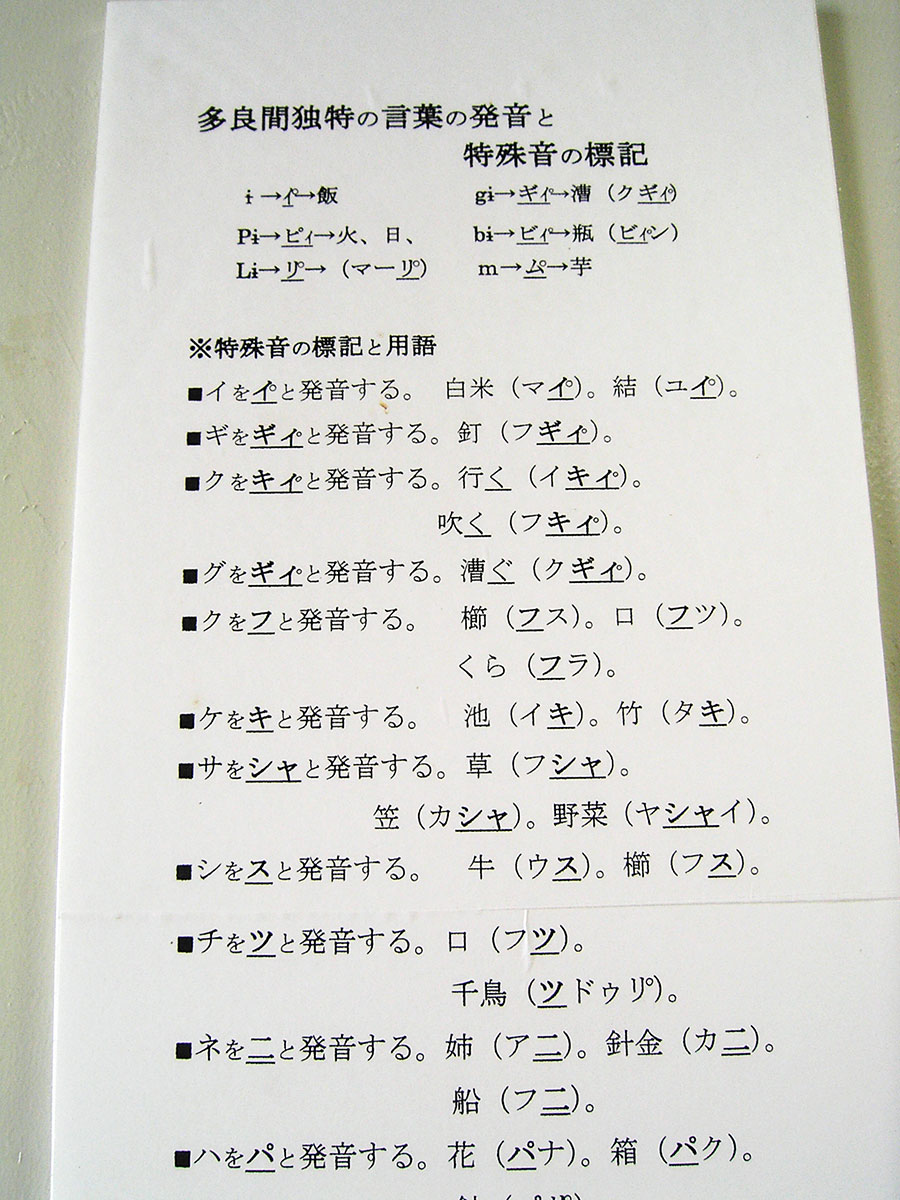 多良間独特の言葉の発音と
特殊音の標記
ɨ→イ゚→飯　gɨ→ギィ゚→漕（クギィ゚）
Pɨ→ピィ→火、日、　bɨ→ビィ゚→瓶（ビィ゚ン）
Lɨ→リ゚→（マーリ゚）　m→ム゚→芋
※特殊音の標記と用語
■イをイ゚と発音する。　白米（マイ゚）。結（ユイ゚）。
■ギをギィ゚と発音する。釘（フギィ゚）。
■クをキィ゚と発音する。行く（イキィ゚）。
吹く（フキィ゚）。
■グをギィ゚と発音する。漕ぐ（クギィ゚）。
■クをフと発音する。　櫛（フス）。口（フツ）。
くら（フラ）。
■ケをキと発音する。　池（イキ）。竹（タキ）。
■サをシャと発音する。草（フシャ）。
笠（カシャ）。野菜（ヤシャイ）。
■シをスと発音する。　牛（ウス）。櫛（フス）。
■チをツと発音する。口（フツ）。
千鳥（ツドゥリ゚）。
■ネをニと発音する。姉（アニ）。針金（カニ）。
船（フニ）。
■ハをパと発音する。花（パナ）。箱（パク）。